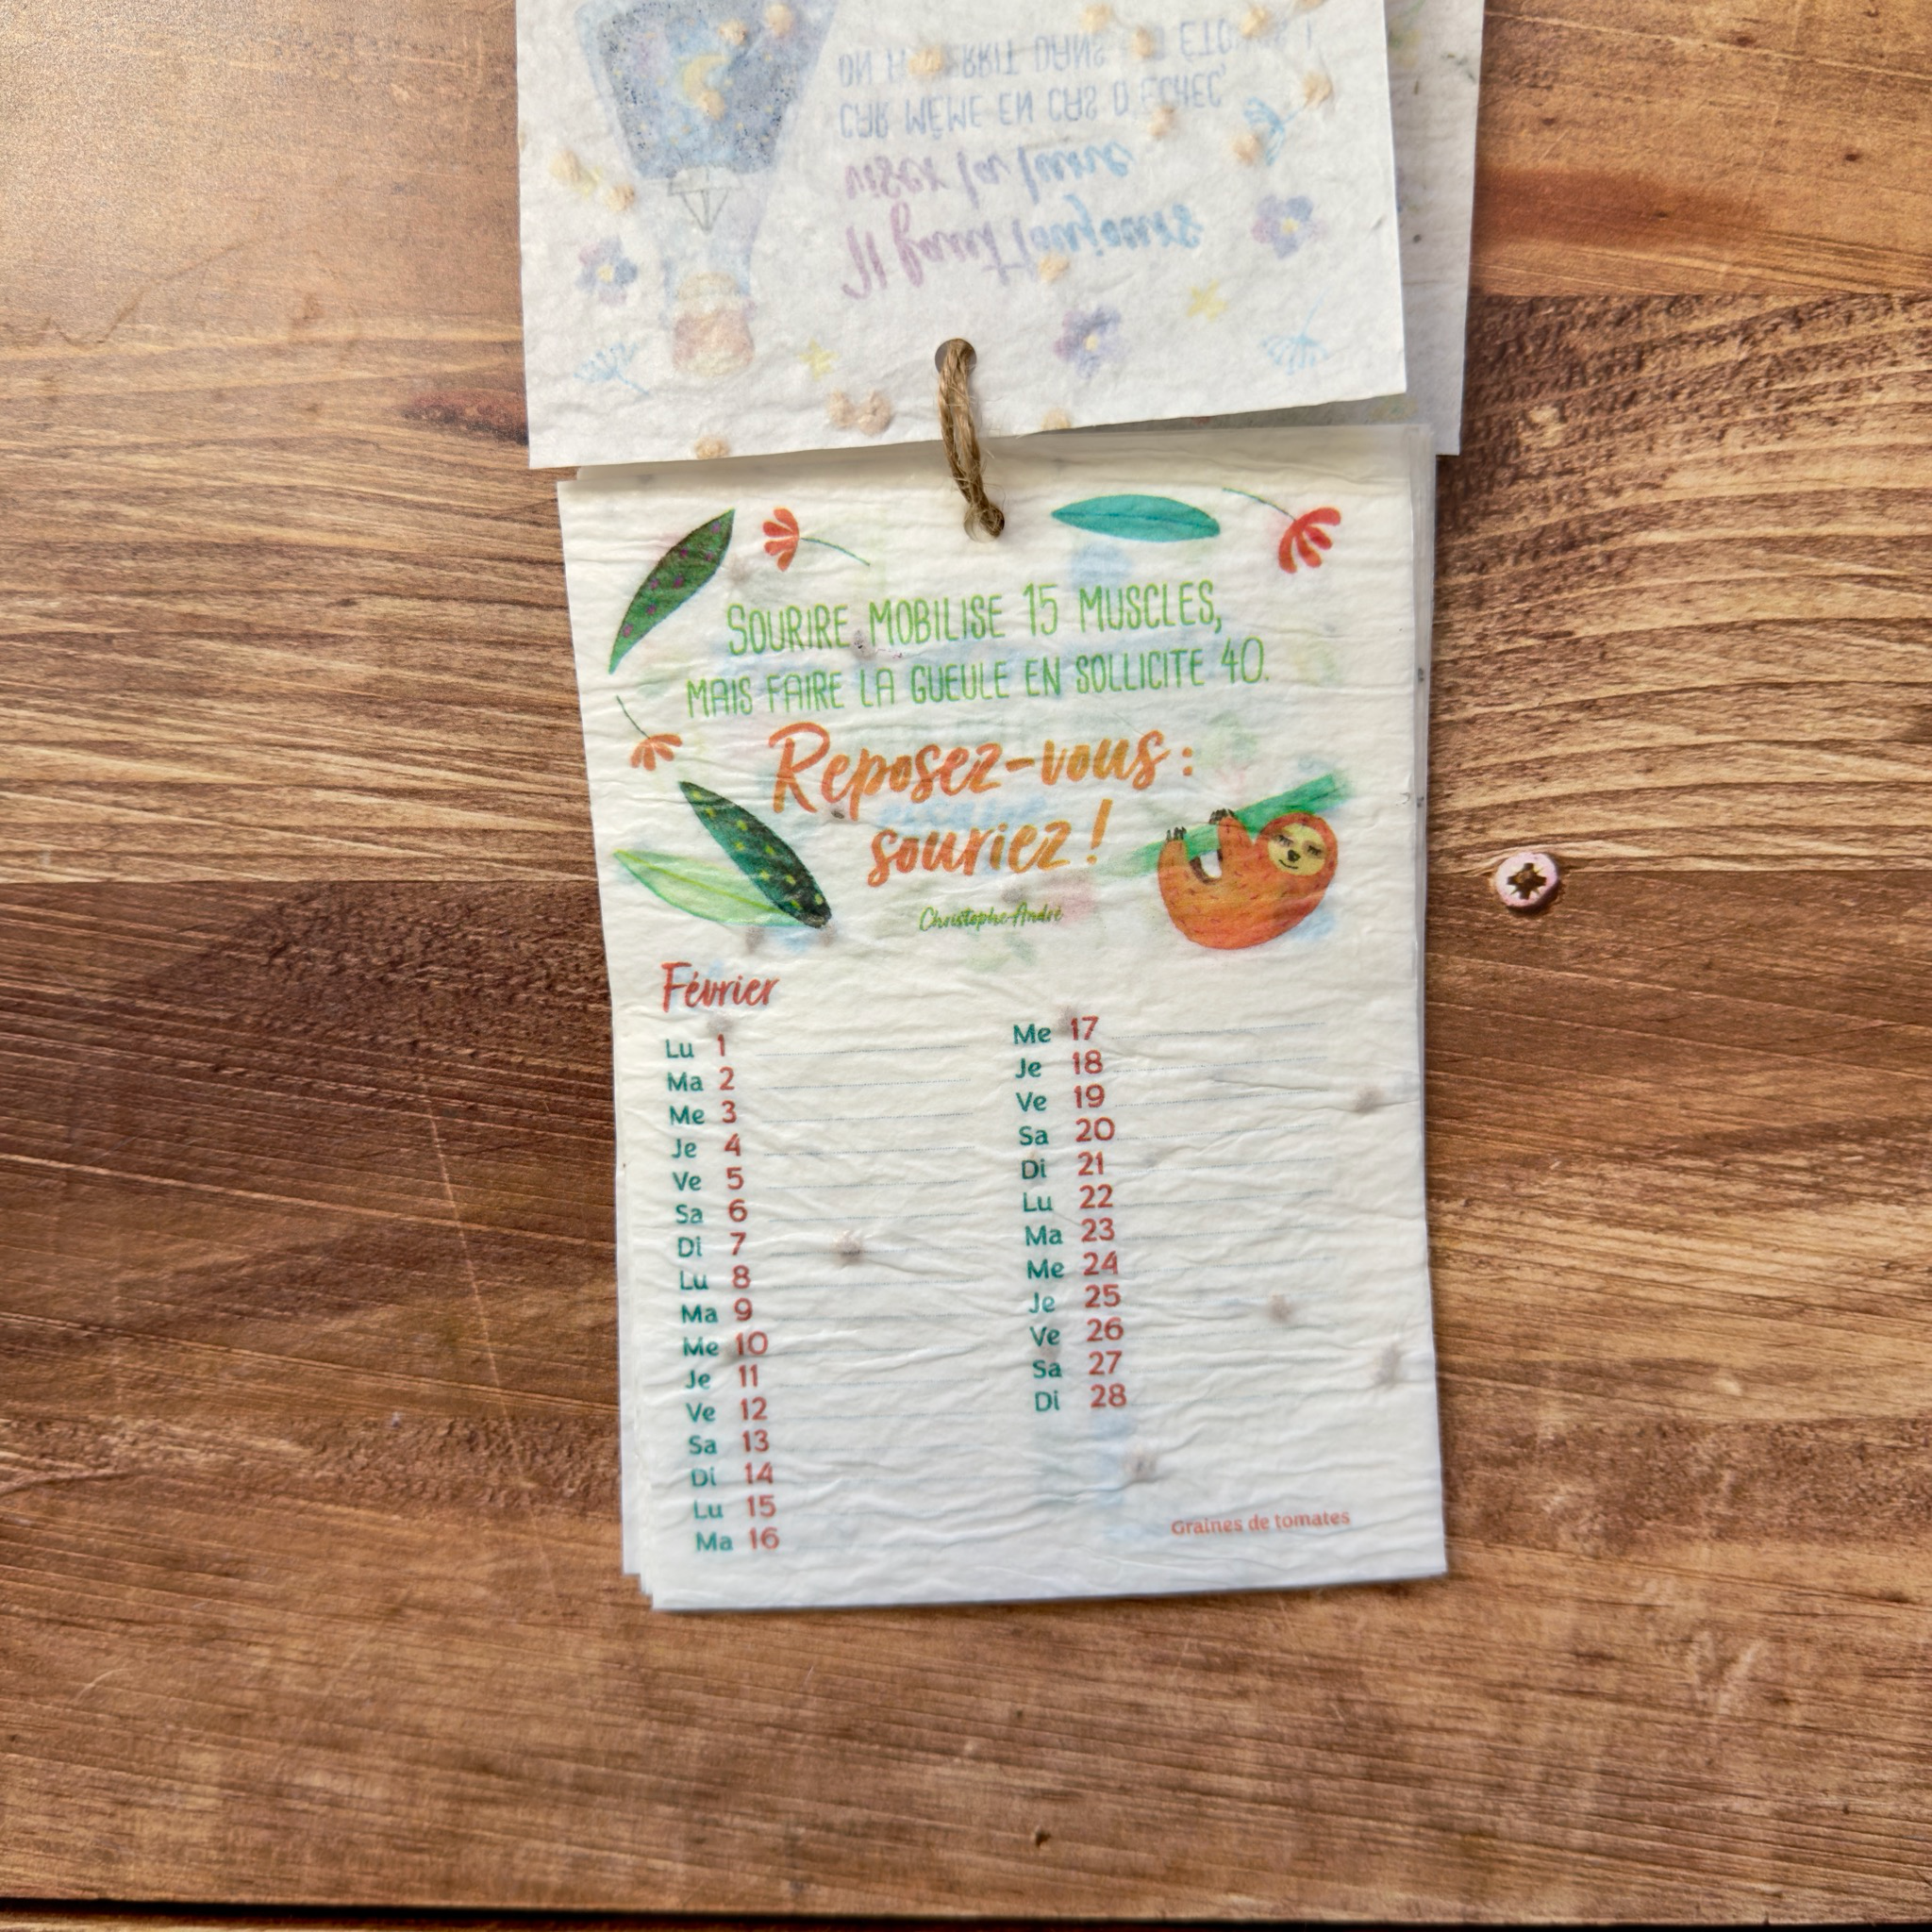 Il faut toujours
viser la lune
CAR MÊME EN CAS D'ÉCHEC,
ON DANS
SOURIRE MOBILISE 15 MUSCLES,
MAIS FAIRE LA GUEULE EN SOLLICITE 40.
Reposez-vous :
souriez !
Christophe André
Février
Lu 1
Ma 2
Me 3
Je 4
Ve 5
Sa 6
Di 7
Lu 8
Ma 9
Me 10
Je 11
Ve 12
Sa 13
Di 14
Lu 15
Ma 16
Me 17
Je 18
Ve 19
Sa 20
Di 21
Lu 22
Ma 23
Me 24
Je 25
Ve 26
Sa 27
Di 28
Graines de tomates